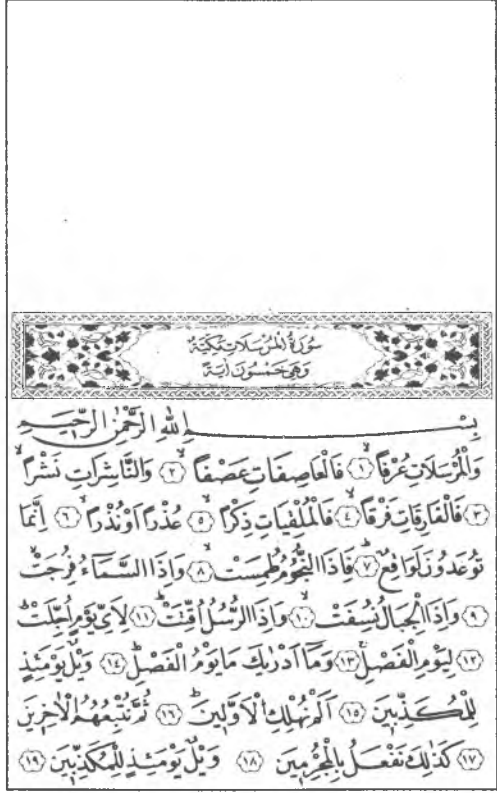 سُورَةُ الْمُرْسَلَاتِ مَكِّيَّةٌ
وَهِيَ خَمْسُونَ اٰيَةً
بِسْمِ اللّٰهِ الرَّحْمٰنِ الرَّحٖيمِ
وَالْمُرْسَلَاتِ عُرْفًاۙ ﴿١﴾ فَالْعَاصِفَاتِ عَصْفًاۙ ﴿٢﴾ وَالنَّاشِرَاتِ نَشْرًاۙ
﴿٣﴾ فَالْفَارِقَاتِ فَرْقًاۙ ﴿٤﴾ فَالْمُلْقِيَاتِ ذِكْرًاۙ ﴿٥﴾ عُذْرًا اَوْ نُذْرًاۙ ﴿٦﴾ اِنَّمَا
تُوعَدُونَ لَوَاقِعٌؕ ﴿٧﴾ فَاِذَا النُّجُومُ طُمِسَتْۙ ﴿٨﴾ وَاِذَا السَّمَٓاءُ فُرِجَتْۙ
﴿٩﴾ وَاِذَا الْجِبَالُ نُسِفَتْۙ ﴿١٠﴾ وَاِذَا الرُّسُلُ اُقِّتَتْؕ ﴿١١﴾ لِاَيِّ يَوْمٍ اُجِّلَتْؕ
﴿١٢﴾ لِيَوْمِ الْفَصْلِۚ ﴿١٣﴾ وَمَٓا اَدْرٰيكَ مَا يَوْمُ الْفَصْلِؕ ﴿١٤﴾ وَيْلٌ يَوْمَئِذٍ
لِلْمُكَذِّبٖينَ ﴿١٥﴾ اَلَمْ نُهْلِكِ الْاَوَّلٖينَؕ ﴿١٦﴾ ثُمَّ نُتْبِعُهُمُ الْاٰخِرٖينَ
﴿١٧﴾ كَذٰلِكَ نَفْعَلُ بِالْمُجْرِمٖينَ ﴿١٨﴾ وَيْلٌ يَوْمَئِذٍ لِلْمُكَذِّبٖينَ ﴿١٩﴾